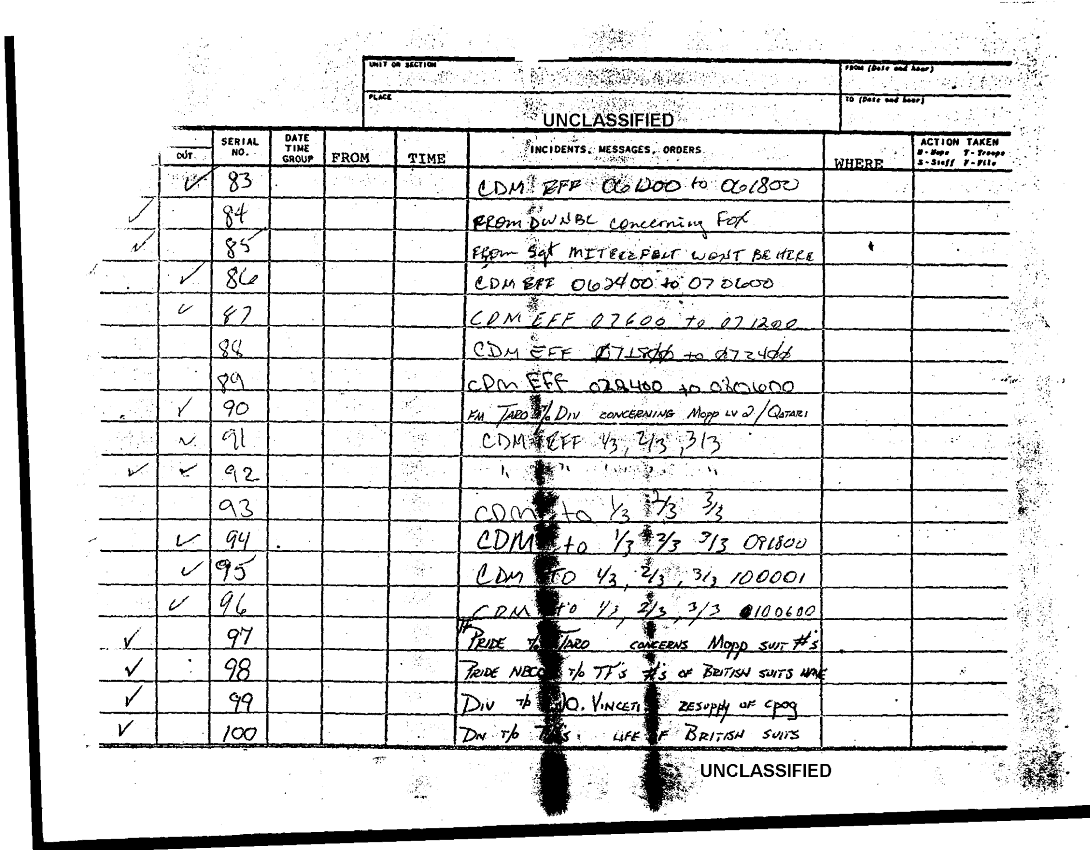 UNIT OR SECTION
FROM (Date and hour)
PLACE
TO (Date and hour)
UNCLASSIFIED
OUT SERIAL NO. DATE TIME GROUP FROM TIME INCIDENTS, MESSAGES, ORDERS WHERE ACTION TAKEN M-Maps T-Troops S-Staff F-File
✓ 83 CDM EFF 061200 to 061800
✓ 84 FROM concerning Fox
✓ 85 FROM Sgt WONT BE HERE
✓ 86 CDM EFF 062400 to 070600
✓ 87 CDM EFF 07600 to 071200
88 CDM EFF 071800 to 072400
89 CDM EFF 072400 to 080600
✓ 90 FM TARO T/O DIV CONCERNING MOPP LV 2 / QATARI
✓ 91 CDM EFF 1/3, 2/3, 3/3
✓ ✓ 92 " " " " "
93 CDM to 1/3 2/3 3/3
✓ 94 CDM to 1/3 2/3 3/3 091800
✓ 95 CDM TO 1/3, 2/3, 3/3 100001
✓ 96 CDM to 1/3, 2/3, 3/3 100600
✓ 97 PRIDE TARO CONCERNS MOPP SUIT #'s
✓ 98 PRIDE T/O TF'S #'s OF BRITISH SUITS HAVE
✓ 99 DIV T/O VINCETI RESUPPLY OF CPOG
✓ 100 DIV T/O LIFE OF BRITISH SUITS
UNCLASSIFIED